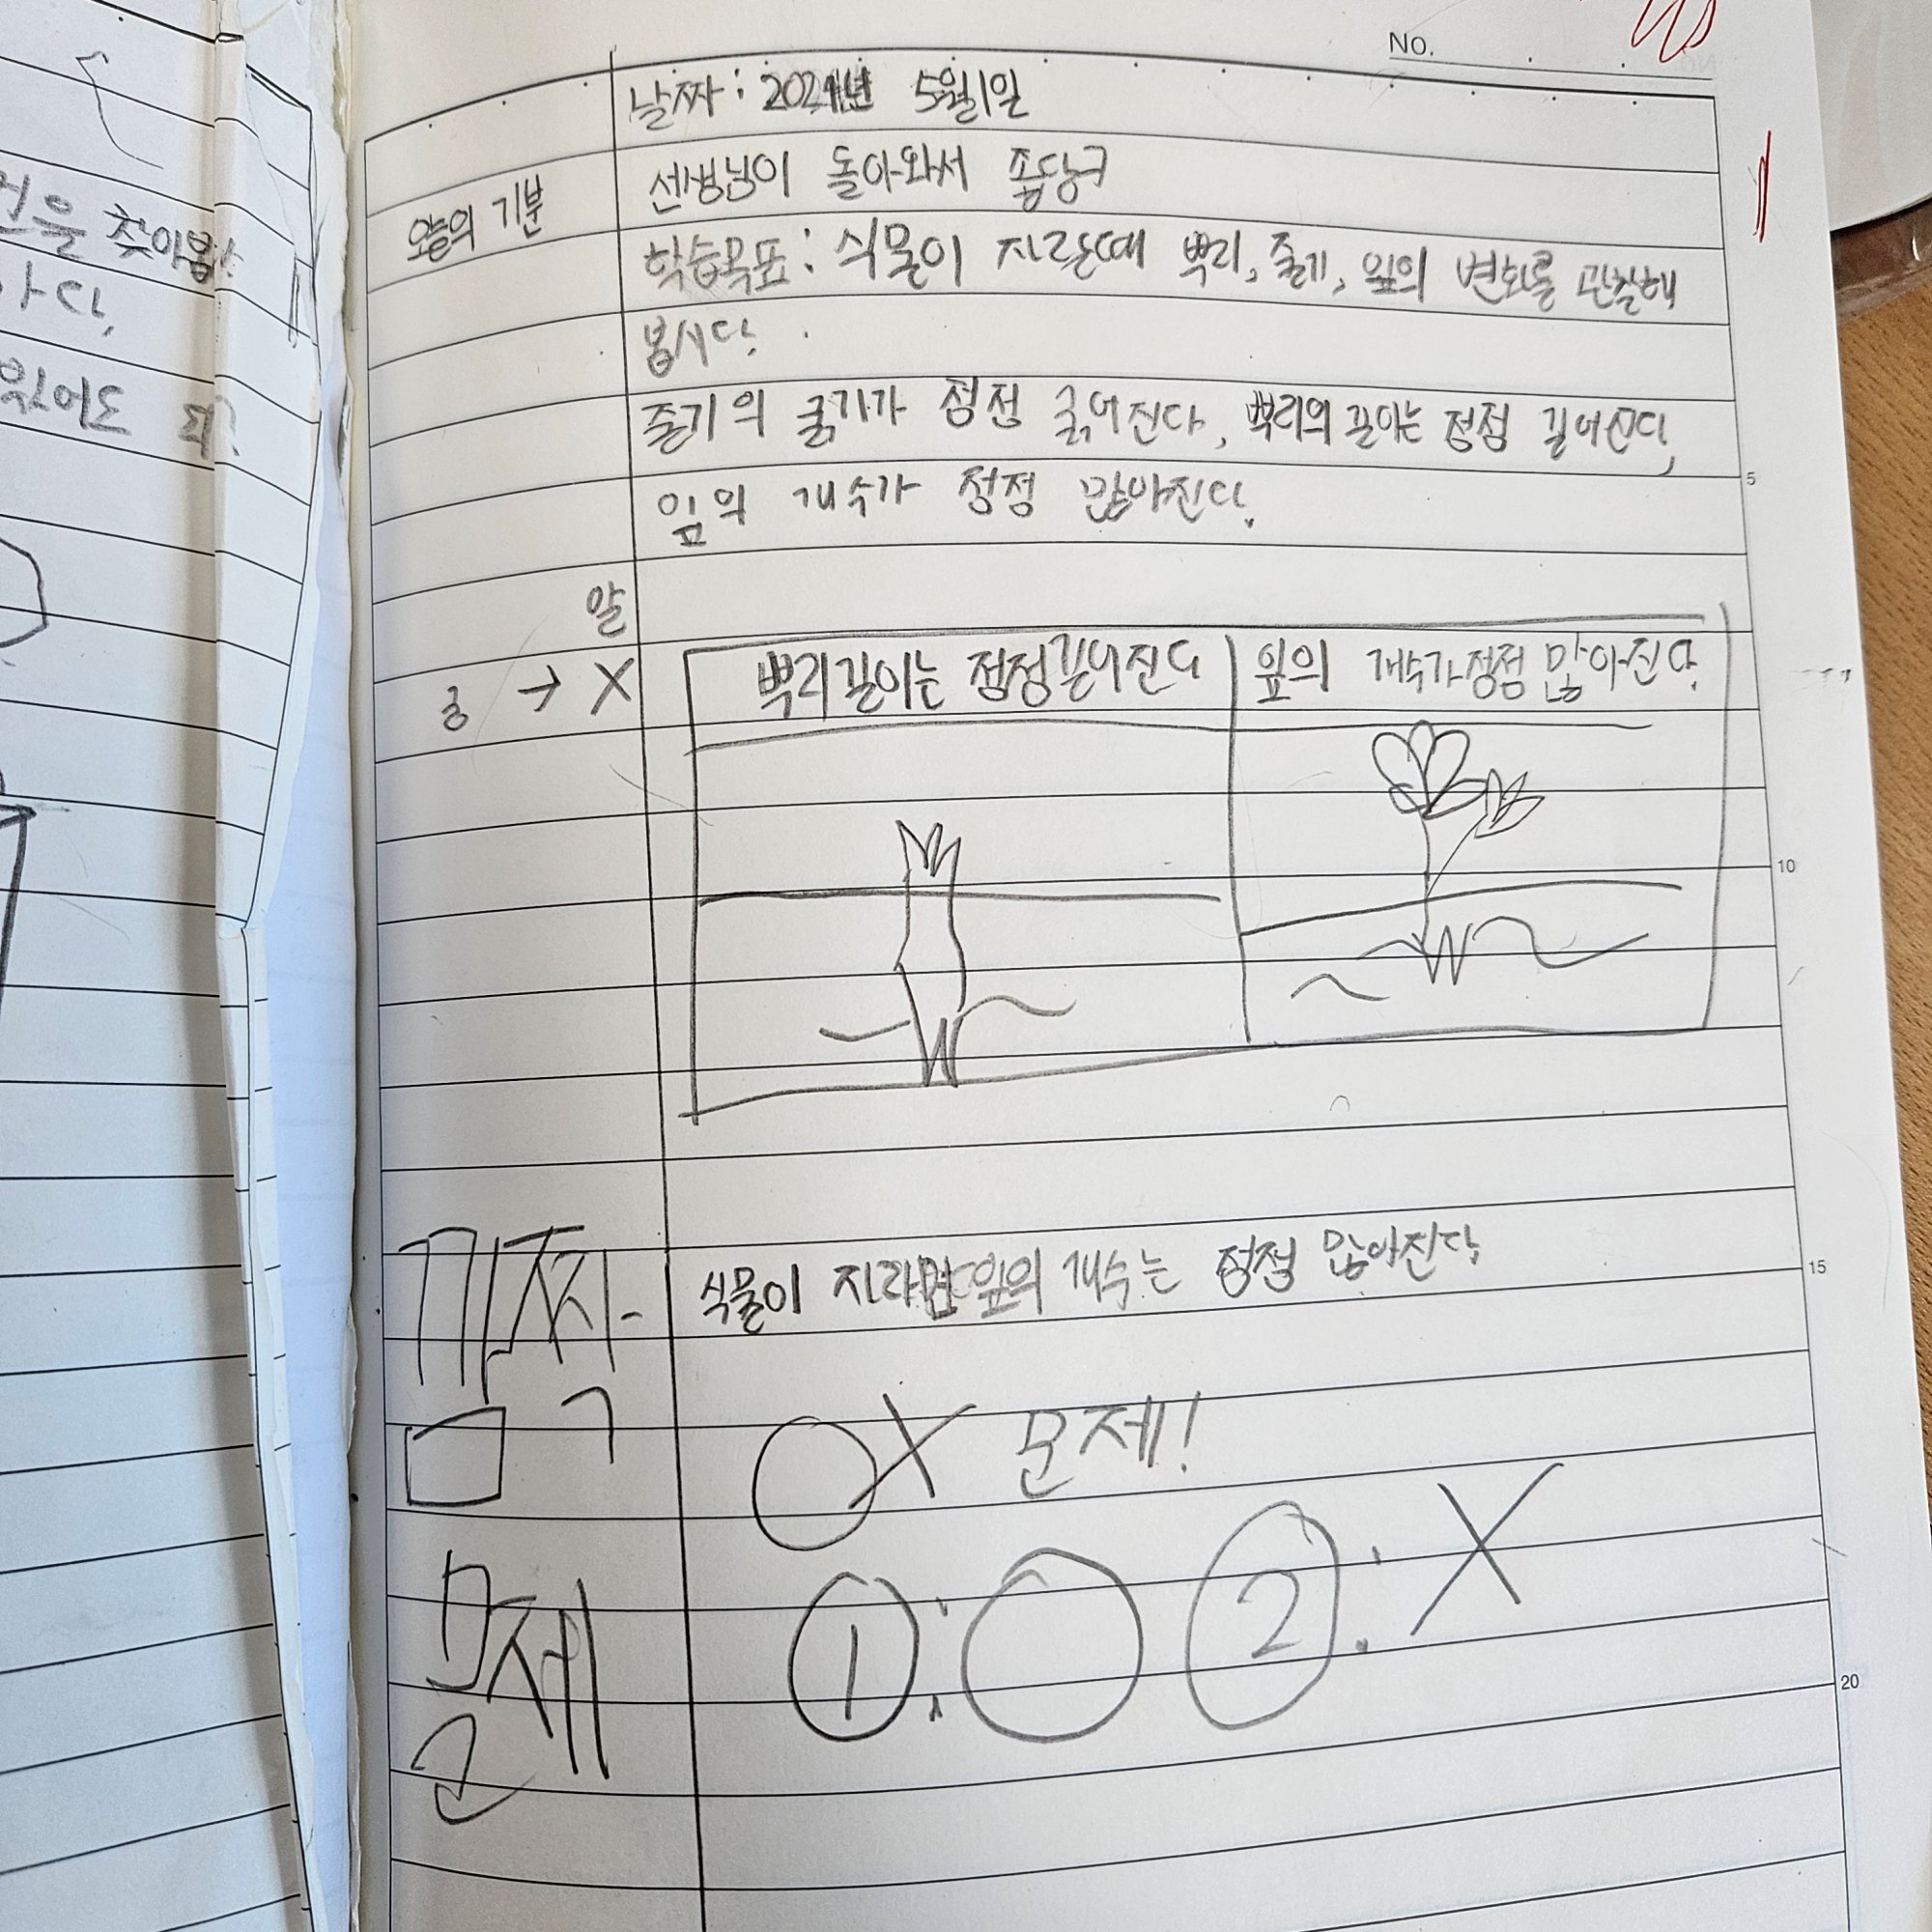 No.
날짜: 2024년 5월1일
선생님이 돌아와서 좋당구
오늘의 기분
학습목표: 식물이 자랄때 뿌리, 줄기, 잎의 변화를 관찰해
봅시다.
줄기의 굵기가 점점 굵어진다, 뿌리의 길이는 점점 길어진다,
잎의 개수가 점점 많아진다.
5
알
궁 → X
뿌리길이는 점점길어진다
잎의 개수가점점 많아진다.
10
식물이 자라면 잎의 개수는 점점 많아진다
15
OX 문제!
문제
① : O ② : X
20
찾아봅
다.
있어도 돼?